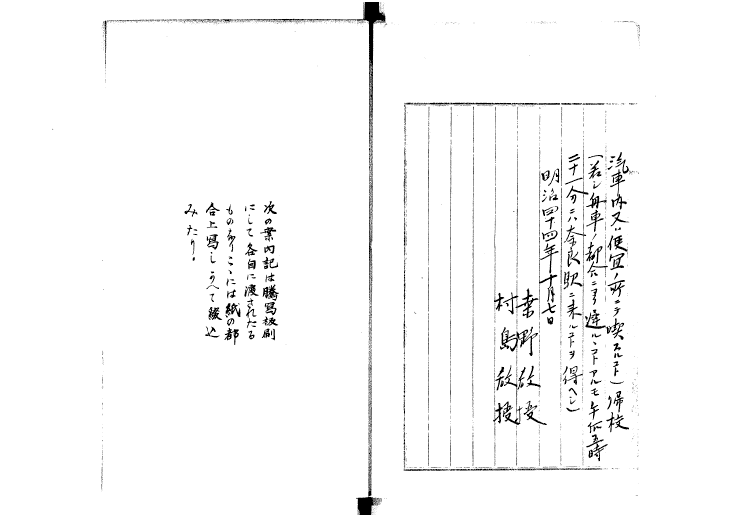 汽車内又ハ便宜ノ所ニテ喫スルコト)帰校
(若シ舟車ノ都合ニヨリ遅ルヽコトアルモ午后五時
二十一分ニハ奈良駅ニ来ルコトヲ得ヘシ)
明治四十四年十月七日
桑野教授
村島教授
次の案内記は謄写版刷
にして各自に渡されたる
ものなりこゝには紙の都
合上写しかへて綴込
みたり。